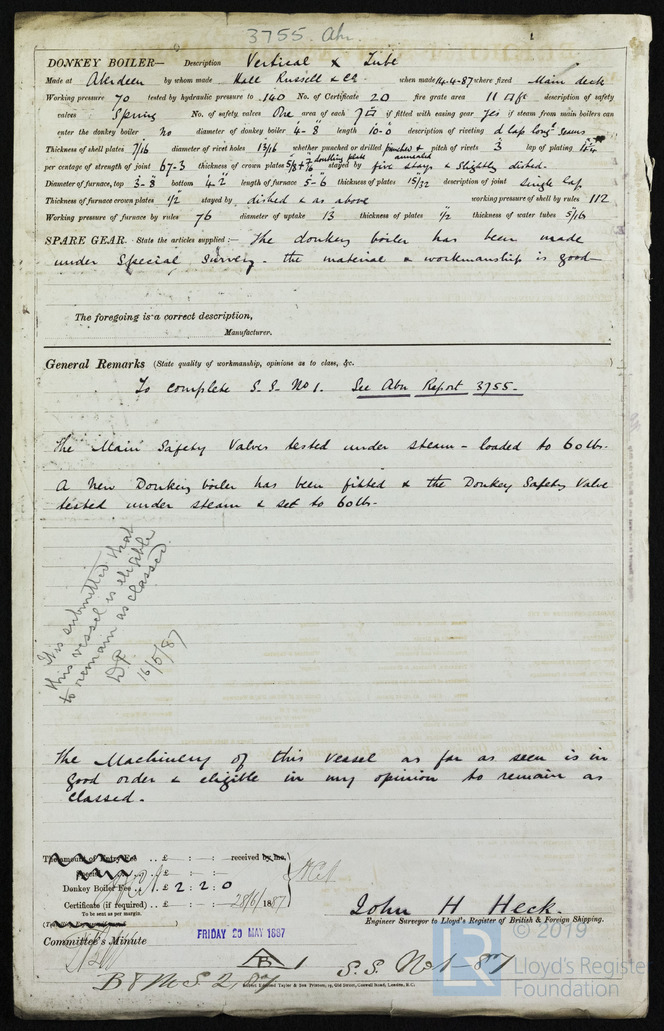 3755. Abn.
DONKEY BOILER— Description Vertical X Tube
Made at Aberdeen by whom made Hall Russell & Co. when made 14-4-87 where fixed Main deck
Working pressure 70 tested by hydraulic pressure to 140 No. of Certificate 20 fire grate area 11 □ft description of safety
valves Spring No. of safety valves One area of each 7□" if fitted with easing gear yes if steam from main boilers can
enter the donkey boiler No diameter of donkey boiler 4-8 length 10-0 description of riveting d lap long¹ seams
Thickness of shell plates 7/16 diameter of rivet holes 13/16 whether punched or drilled punched & annealed pitch of rivets 3 lap of plating
per centage of strength of joint 67-3 thickness of crown plates doubling plate stayed by five stays & slightly dished.
Diameter of furnace, top 3-8 bottom 4-2 length of furnace 5-6 thickness of plates 15/32 description of joint Single lap
Thickness of furnace crown plates 1/2 stayed by dished & as above working pressure of shell by rules 112
Working pressure of furnace by rules 76 diameter of uptake 13 thickness of plates 1/2 thickness of water tubes 5/16
SPARE GEAR. State the articles supplied:— The donkey boiler has been made
under Special Survey - the material & workmanship is good—
The foregoing is a correct description,
Manufacturer.
General Remarks (State quality of workmanship, opinions as to class, &c. )
To complete S.S. No 1. See Abn Report 3755.
The Main Safety Valves tested under steam - loaded to 60 lbs.
A New Donkey boiler has been fitted & the Donkey Safety Valve
tested under steam & set to 60 lbs.
It is submitted that
this vessel is eligible
to remain as classed.
16/5/87
The Machinery of this vessel as far as seen is in
good order & eligible in my opinion to remain as
classed.
The amount of Entry Fee .. £ : : received by me,
Special .. £ : :
Donkey Boiler Fee .. £ 2 : 2 . 0
Certificate (if required) .. £ : : 28/6/1887
To be sent as per margin.
John H Heck.
Engineer Surveyor to Lloyd's Register of British & Foreign Shipping.
Committee's Minute
FRIDAY 20 MAY 1887
B 1 S.S. No 1-87
B & M S 2, 87
© 2019
LR
Lloyd's Register
Foundation